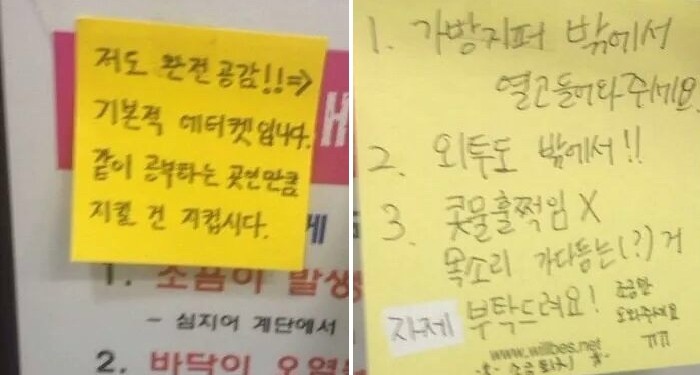 저도 완전공감!!⇒
기본적 에티켓입니다.
같이 공부하는 곳인만큼
지킬 건 지킵시다.
1. 소음이 발생
- 심지어 계단에서
2. 바닥이
1. 가방지퍼 밖에서
열고들어와주세요
2. 외투도 밖에서!!
3. 콧물훌쩍임 X
목소리 가다듬는(?) 거
자제 부탁드려요!
조금만
도와주세요
ㅠㅠ
www.willbes.net